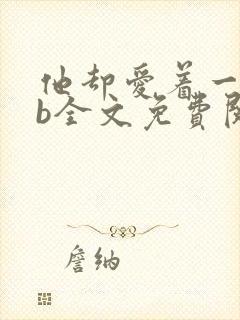 他却爱着一
b全文免費閱
詹纳